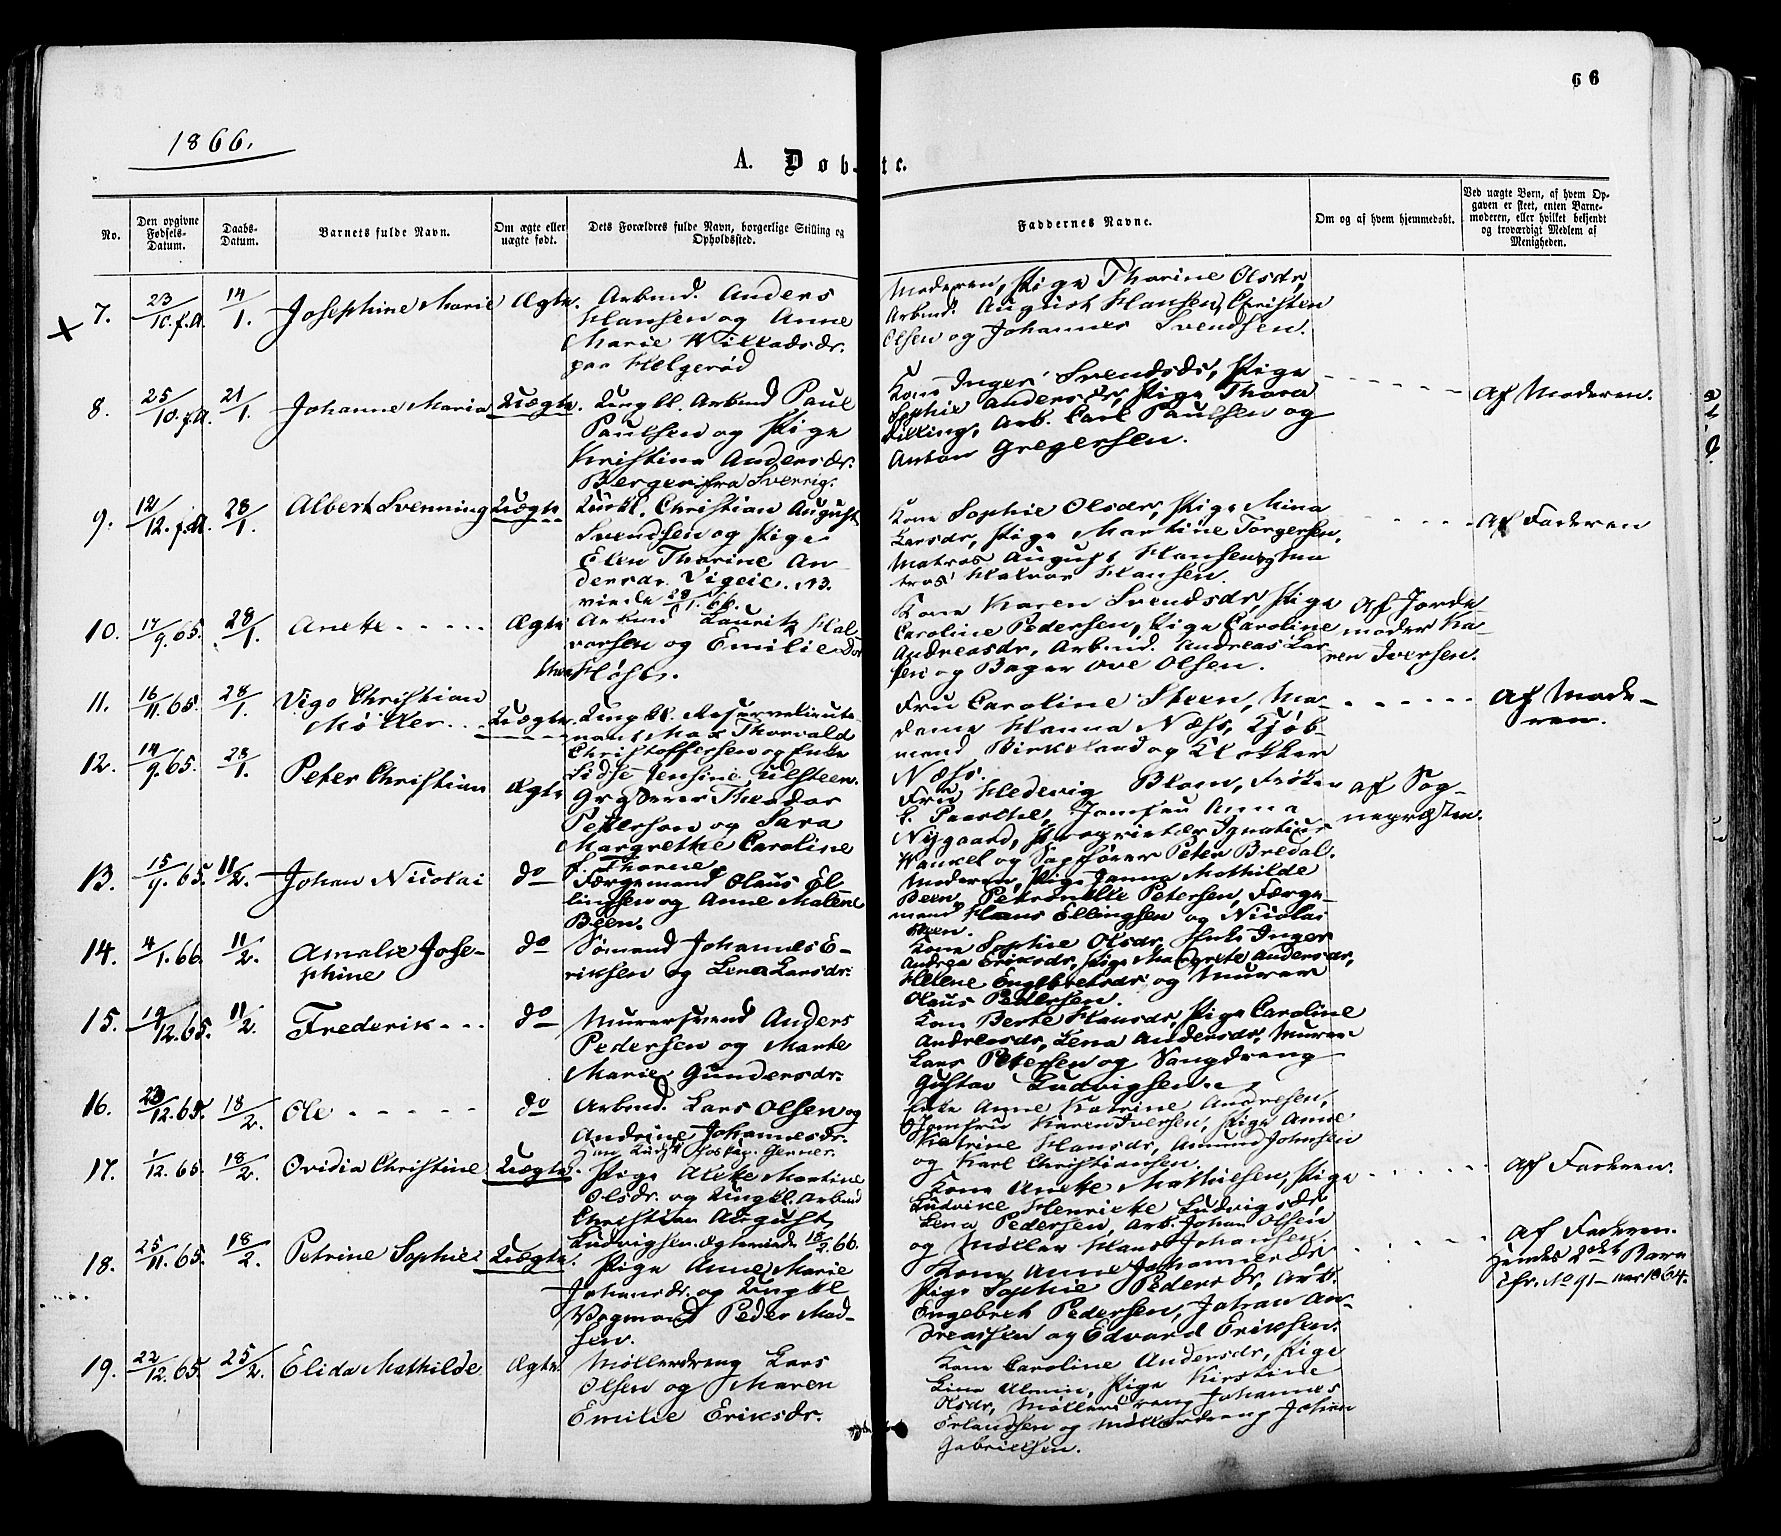 66
1866.
A. Døbte.
No.
Den opgivne Fødsels-Datum.
Daabs-Datum.
Barnets fulde Navn.
Om ægte eller uægte født.
Dets Forældres fulde Navn, borgerlige Stilling og Opholdssted.
Faddernes Navne.
Om og af hvem hjemmedøbt.
Ved uægte Børn, af hvem Opgaven er skeet, enten Barnemoderen, eller hvilket bekjendt og troværdigt Medlem af Menigheden.
7. 23/10. f.A. 14/1. Josephine Marie Ægte.
Arbmd. Anders
Hansen og Anne
Marie Willadsdr.
paa Helgerød
Moderen, Pige Thorine Olsdr,
Arbmd. August Hansen, Christen
Olsen og Johannes Svendsen.
8. 25/10. f.A. 21/1. Johanne Maria Uægte.
Ungkl. Arbmd Paul
Paulsen og Pige
Kristina Andersdr.
Berger fra Sverrig.
Kone Inger Svendsdr, Pige
Sophie Andersdr, Pige Thora
Killing, Arb. Carl Paulsen og
Anton Gregersen.
Af Moderen.
9. 12/12. f.A. 28/1. Albert Svenning Uægte
Ungkl. Christian August
Svendsen og Pige
Elen Thorine An-
dersdr. Vigeie. N3.
viede 28/1. 66.
Kone Sophie Olsdr, Pige Mina
Larsdr, Pige Martine Torgersen,
Matros August Hansen og Ma
tros Halvor Hansen.
Af Faderen
10. 17/9. 65. 28/1. Anette Ægte
Arbmd Lauritz Hal-
vorsen og Emilie
Høst.
Kone Karen Svendsdr, Pige
Caroline Pedersen, Pige Caroline
Andreasdr, Arbmd. Andreas Lar
sen og Bager Ove Olsen.
Af Jorde-
moder Ka-
ren Iversen.
11. 16/11. 65. 28/1. Vigo Christian
Møller Uægte
Ungkl. Reservelieute-
nant Max Thorvald
Christoffersen og Enke
Sidse Jensine Ulsteen.
Fru Caroline Steen, Ma-
dame Hanna Næss, Kjøb-
mand Birkeland og Klokker
Næss.
Af Mode-
ren.
12. 14/9. 65. 28/1. Peter Christian Ægte
Theodor
Petterson og Sara
Margrethe Caroline
f. Thorne
Fru Hedevig Blom, Frøken
Jomfru Anna
Nygaard, Proprietær Ignatius
Wankel og Sagfører Peter Bredal.
Af Sog-
nepræsten.
13. 15/9. 65. 11/2. Johan Nicolai do
Færgemand Olaus El-
lingsen og Anne Malene
Been.
Moderen, Pige Janna Mathilde
Been, Petronelle Petersen, Færge
mand Hans Ellingsen og Nicolai
Been.
14. 4/1. 66. 11/2. Amalie Jose-
phine do
Sømand Johannes E-
riksen og Lena Larsdr.
Kone Sophie Olsdr, Enke Inger
Andrea Eriksdr, Pige Margrete Andersdr,
Helene Engebretsdr og Murer
Olaus Pedersen.
15. 19/12. 65. 11/2. Frederik do
Murersvend Anders
Pedersen og Marte
Marie Gundersdr.
Kone Berte Hansdr, Pige Caroline
Andreasdr, Lena Andersdr, Murer
Lars Petersen og Vongdreng
Gustav Ludvigsen.
16. 23/12. 65. 18/2. Ole do
Arbmd. Lars Olsen og
Andrine Johannesdr.
Enke Anne Katrine Andresen,
Jomfru Karen Iversen, Pige Anne
Katrine Hansdr, Amund Johnsen
og Karl Christiansen.
17. 1/12. 65. 18/2. Ovidia Christine Uægte
Pige Alette Martine
Olsdr. og Ungkl. Arbmd
Christian August
Ludvigsen. Ægteviede 18/2. 66.
Kone Anette Mathiesen, Pige
Ludvike Henriette Ludvigsdr,
Lena Pedersen, Arb. Johan Olsen
og Møller Hans Johansen.
Af Faderen.
18. 25/11. 65. 18/2. Petrine Sophie Uægte
Pige Anne Marie
Johansdr. og Ungkl
Vogmand Peder Mad-
sen.
Kone Anne Johannesdr
Pige Sophie Pedersdr, Arb.
Engebreth Pedersen, Johan An-
dreassen og Edvard Eriksen.
Af Faderen.
Hendes 2det Barn
cfr. No 91 – 1864.
19. 22/12. 65. 25/2. Elida Mathilde Ægte
Møllerdreng Lars
Olsen og Maren
Emilie Eriksdr.
Kone Caroline Andersdr, Pige
Lina Pige Kirstine
Olsdr, Møllerdreng Johannes
Erlandsen og Møllerdreng Johan
Gabrielsen.